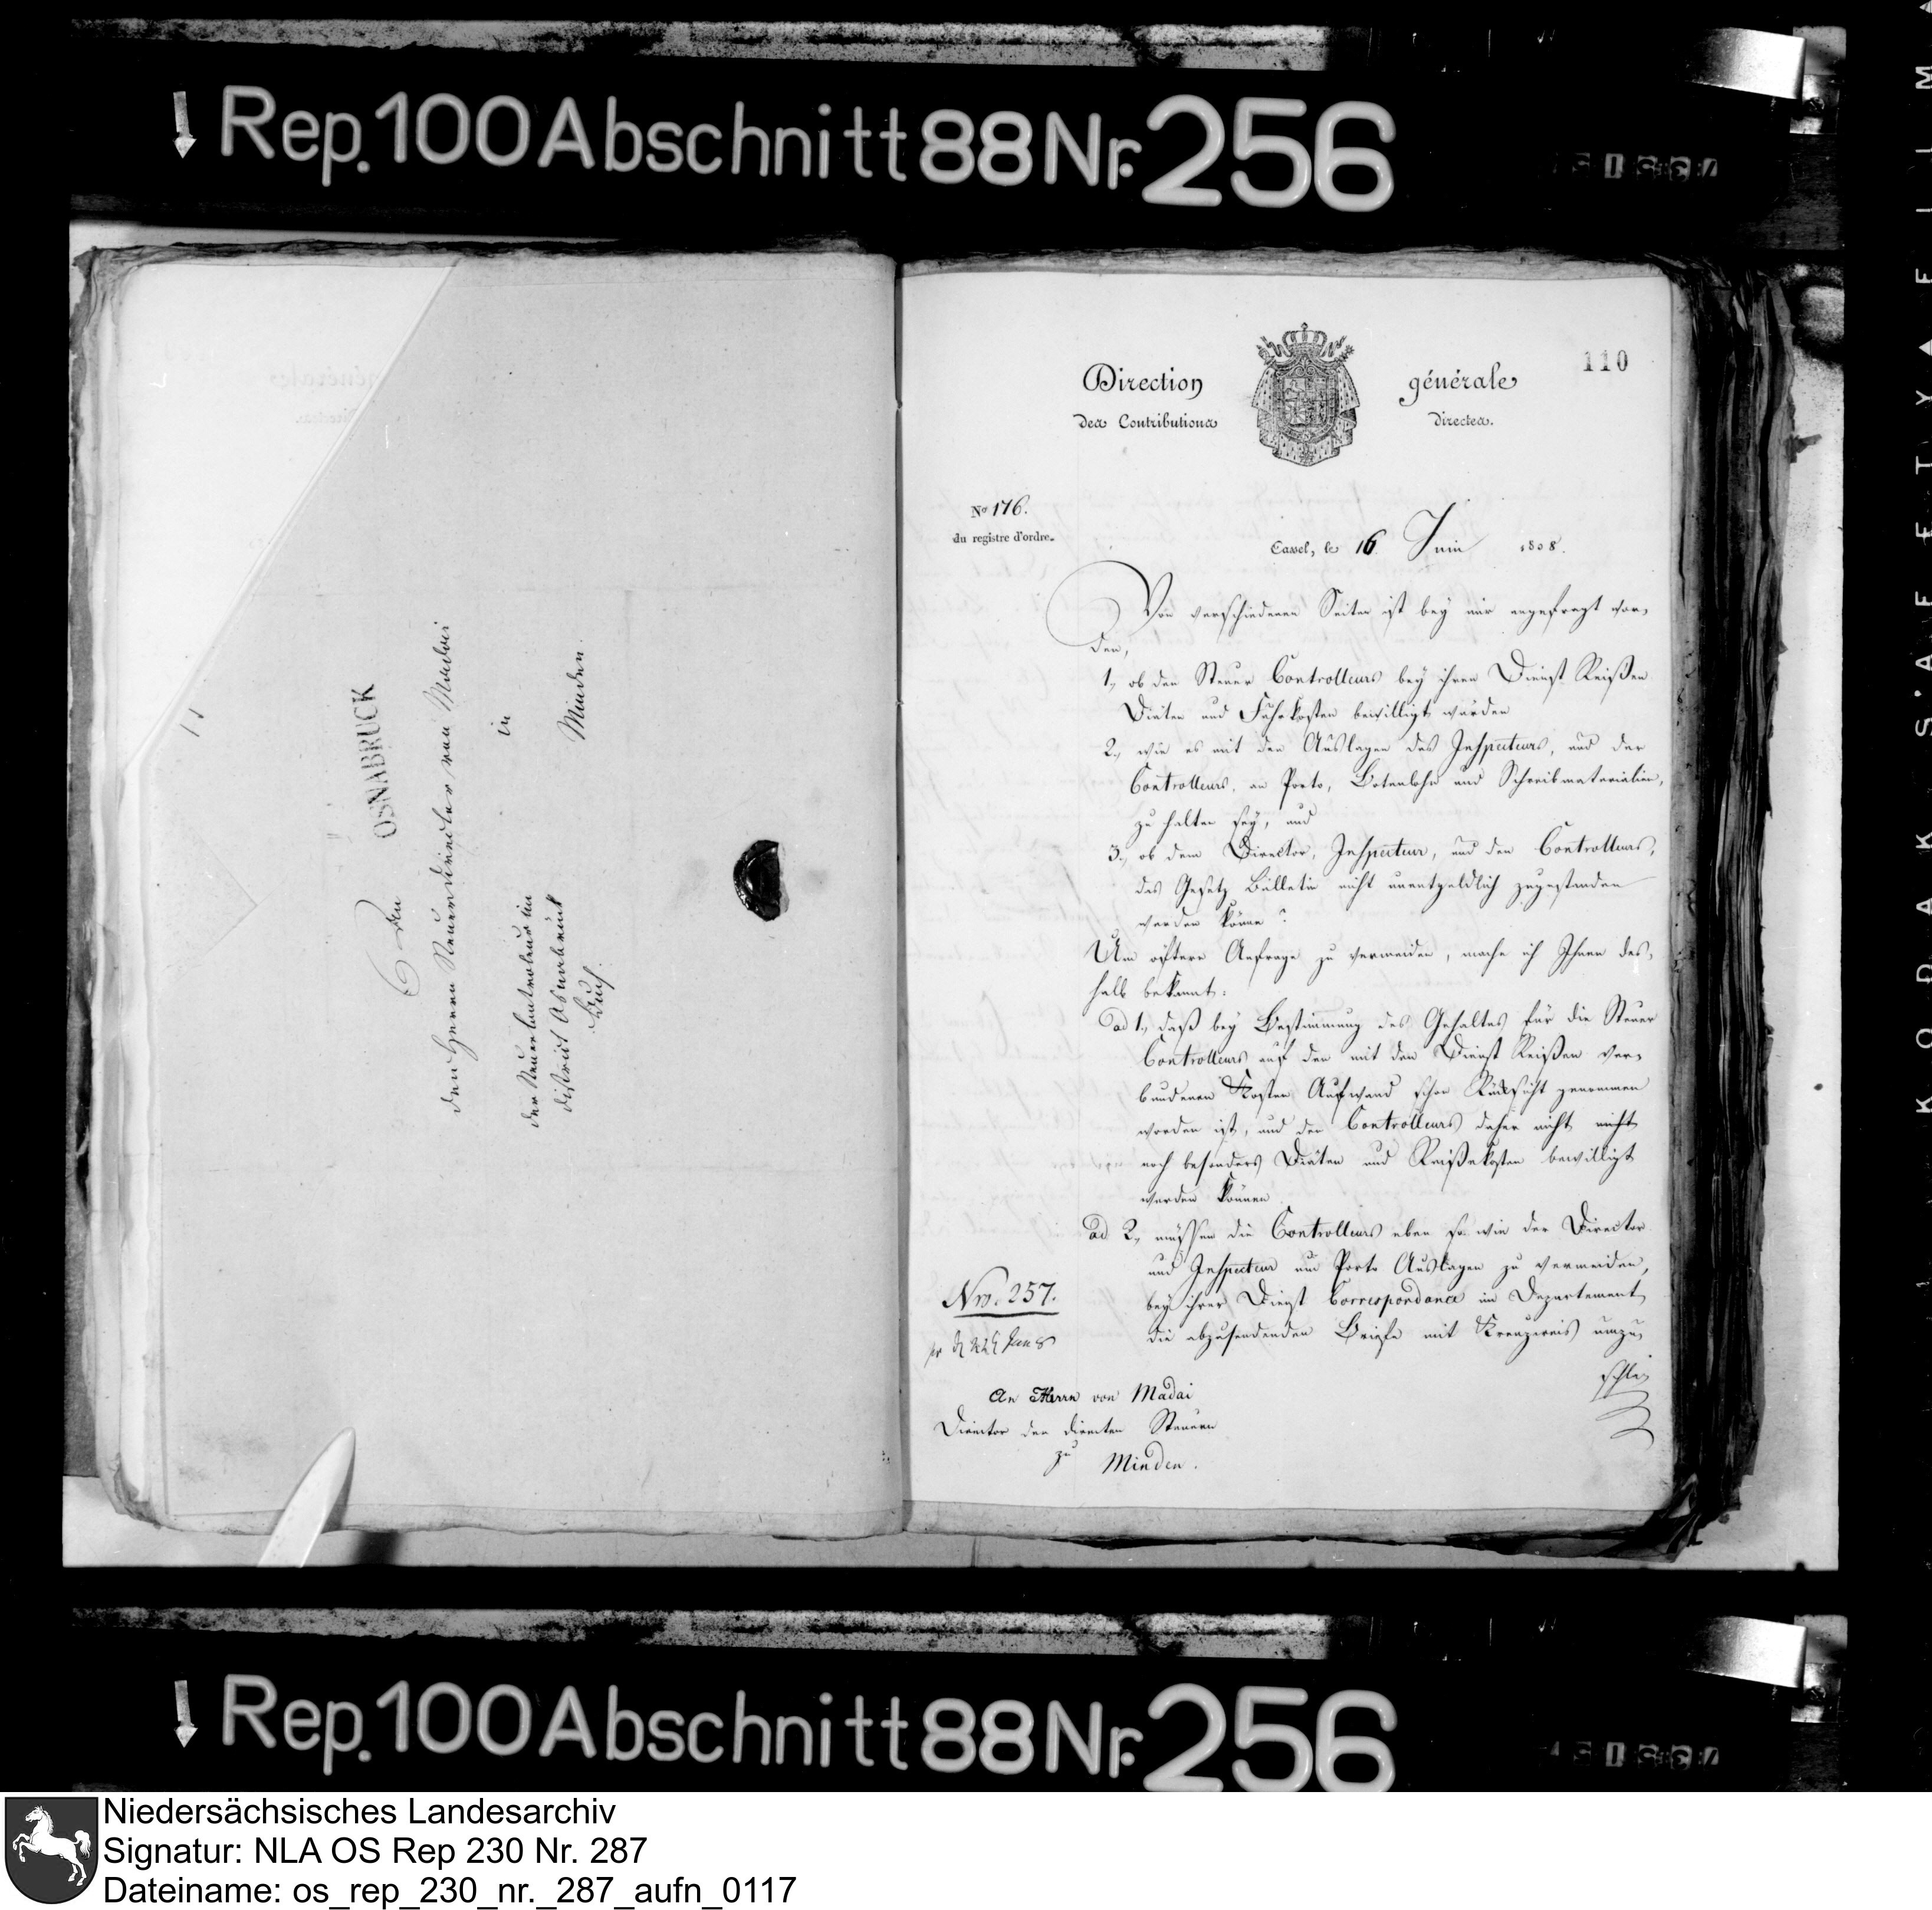 Rep. 100 Abschnitt 88 Nr. 256
OSNABRUCK
An
den Herrn Steuerdirector von Madai
in
Minden.
der Steuerkontroleur im
District Osnabrück
110
Direction générale
des Contributions directes.
No 176.
du registre d'ordre.
Cassel, le 16 Juin 1808.
Von verschiedenen Seiten ist bey mir angefragt wor-
den,
1., ob den Steuer Controlleurs bey ihren Dienst Reißen
Diäten und Fuhrkosten bewilligt würden
2., wie es mit den Auslagen des Inspecteurs, und der
Controlleurs, an Porto, Botenlohn und Schreibmaterialien,
zu halten sey, und
3., ob dem Director, Inspecteur, und den Controlleurs,
das Gesetz Bülletin nicht unentgeldlich zugestanden
werden könne?
Um öftere Anfrage zu vermeiden, mache ich Ihnen des-
halb bekannt:
ad 1., daß bey Bestimmung des Gehaltes für die Steuer
Controlleurs auf den mit den Dienst Reißen ver-
bundenen Kosten Aufwand schon Rücksicht genommen
worden ist, und den Controlleurs daher nicht nicht
noch besonders Diäten und Reißekosten bewilligt
werden können
ad 2., müssen die Controlleurs eben so wie der Director
und Inspecteur um Porto Auslagen zu vermeiden,
bey ihrer Dienst Correspondance im Departement
die abzusendenden Briefe mit Kreuzweis umzu-
schla-
Nro. 257.
An Herrn von Madai
Director der directen Steuern
zu
Minden.
Rep. 100 Abschnitt 88 Nr. 256
KODAK SAFETY FILM
Niedersächsisches Landesarchiv
Signatur: NLA OS Rep 230 Nr. 287
Dateiname: os_rep_230_nr._287_aufn_0117